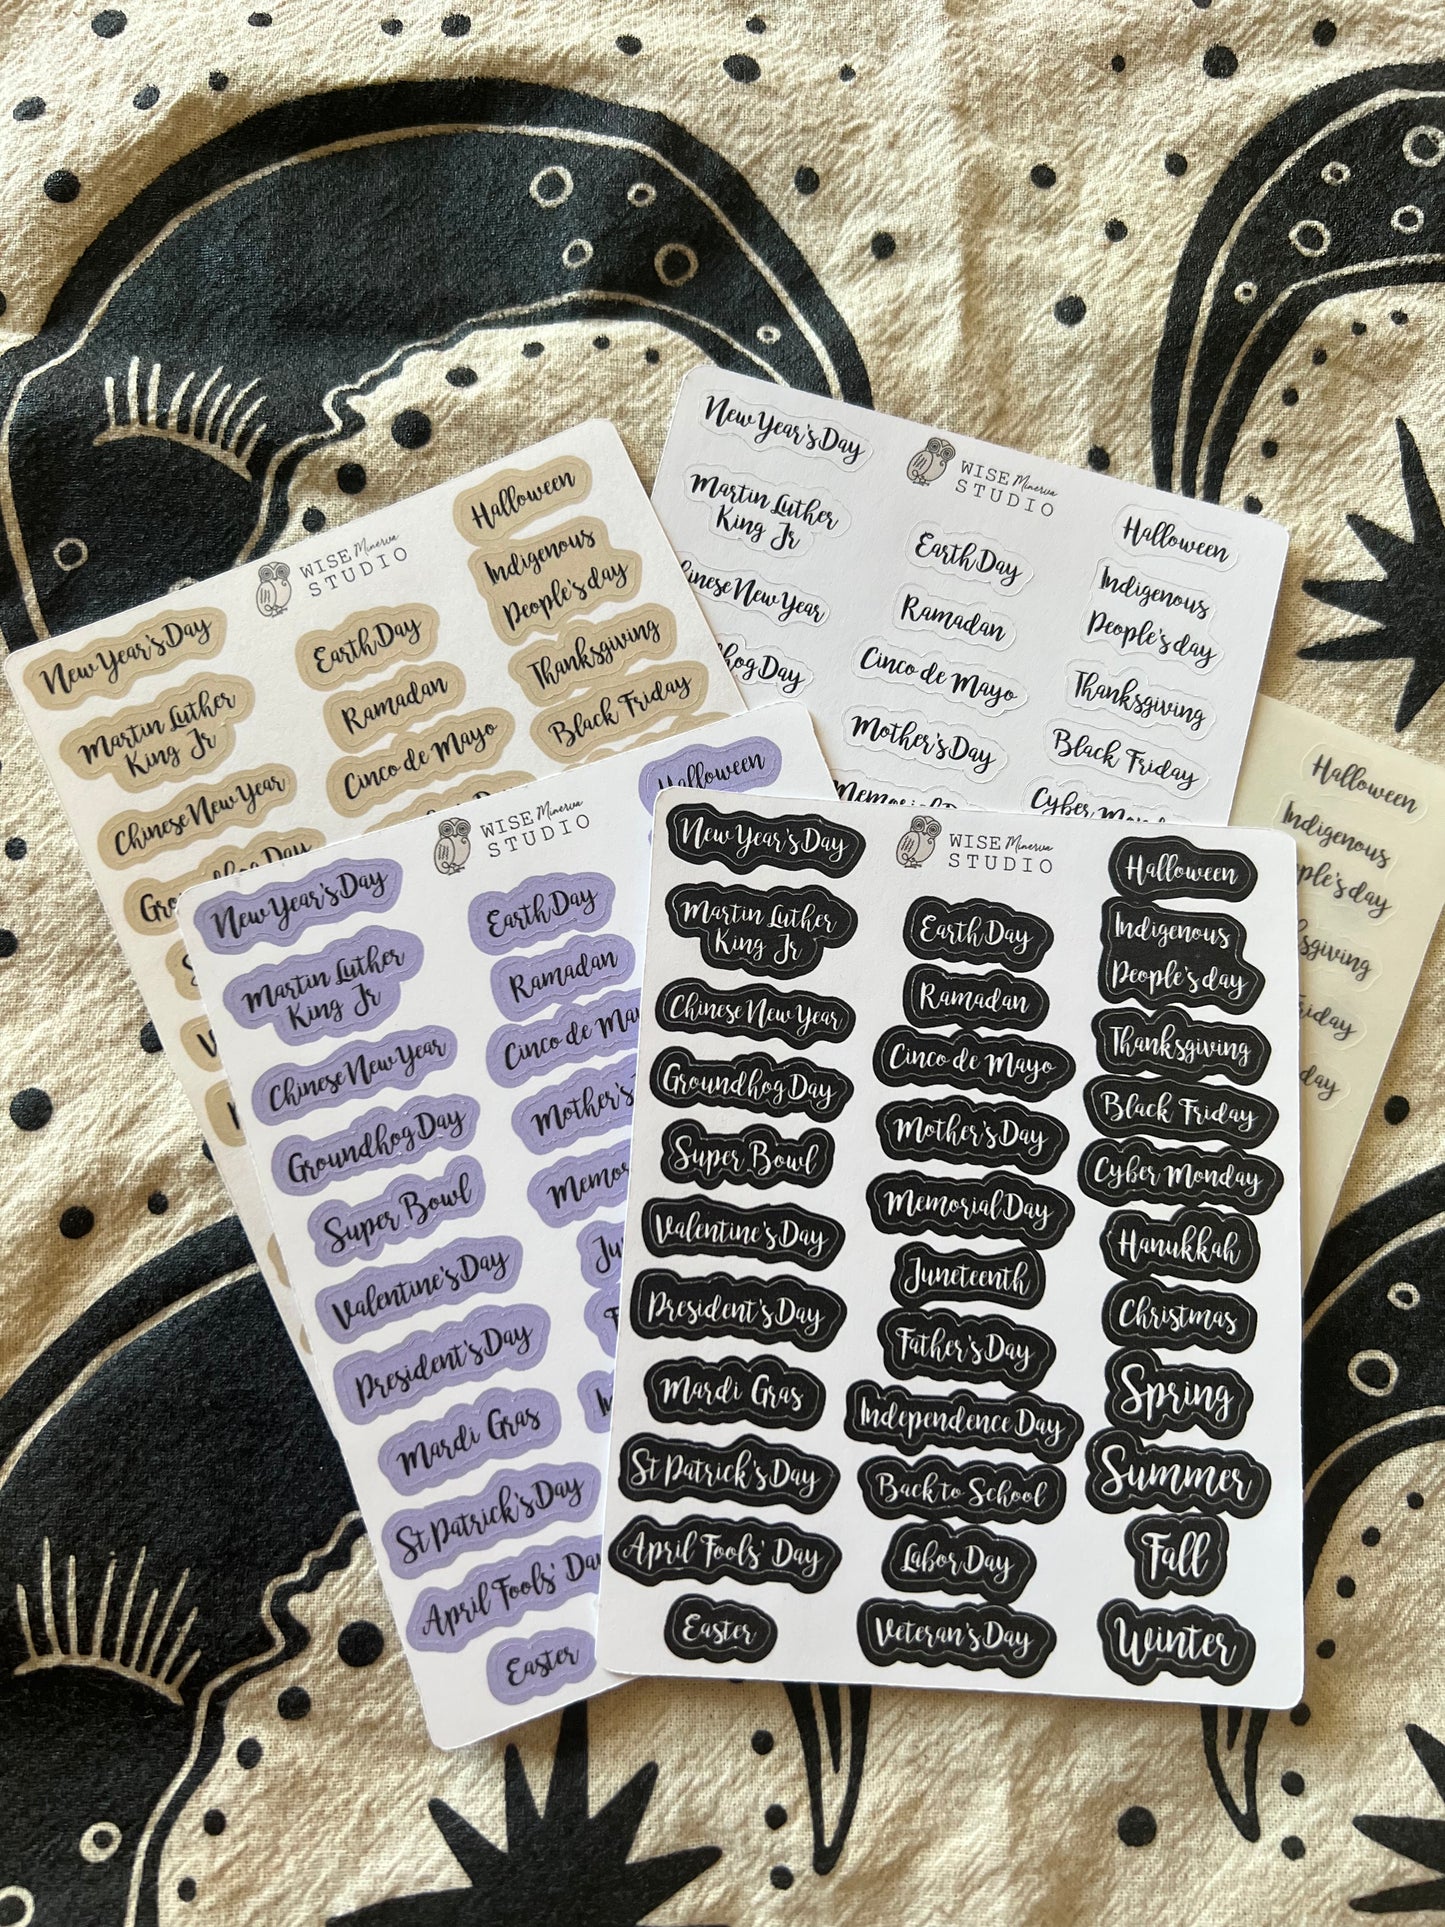 Halloween
Indigenous
People's day
Thanksgiving
Black Friday
WISE Minerva
STUDIO
New Year's Day
Martin Luther
King Jr
Chinese New Year
Earth Day
Ramadan
Cinco de Mayo
New Year's Day
Martin Luther
King Jr
WISE Minerva
STUDIO
Earth Day
Ramadan
Cinco de Mayo
Mother's Day
Halloween
Indigenous
People's day
Thanksgiving
Black Friday
Halloween
Indigenous
WISE Minerva
STUDIO
Halloween
New Year's Day
Martin Luther
King Jr
Chinese New Year
Groundhog Day
Super Bowl
Valentine's Day
President's Day
Mardi Gras
St Patrick's Day
April Fools' Day
Easter
Earth Day
Ramadan
Cinco de
Mother's
WISE Minerva
STUDIO
New Year's Day
Martin Luther
King Jr
Chinese New Year
Groundhog Day
Super Bowl
Valentine's Day
President's Day
Mardi Gras
St Patrick's Day
April Fools' Day
Easter
Earth Day
Ramadan
Cinco de Mayo
Mother's Day
Memorial Day
Juneteenth
Father's Day
Independence Day
Back to School
Labor Day
Veteran's Day
Halloween
Indigenous
People's day
Thanksgiving
Black Friday
Cyber Monday
Hanukkah
Christmas
Spring
Summer
Fall
Winter